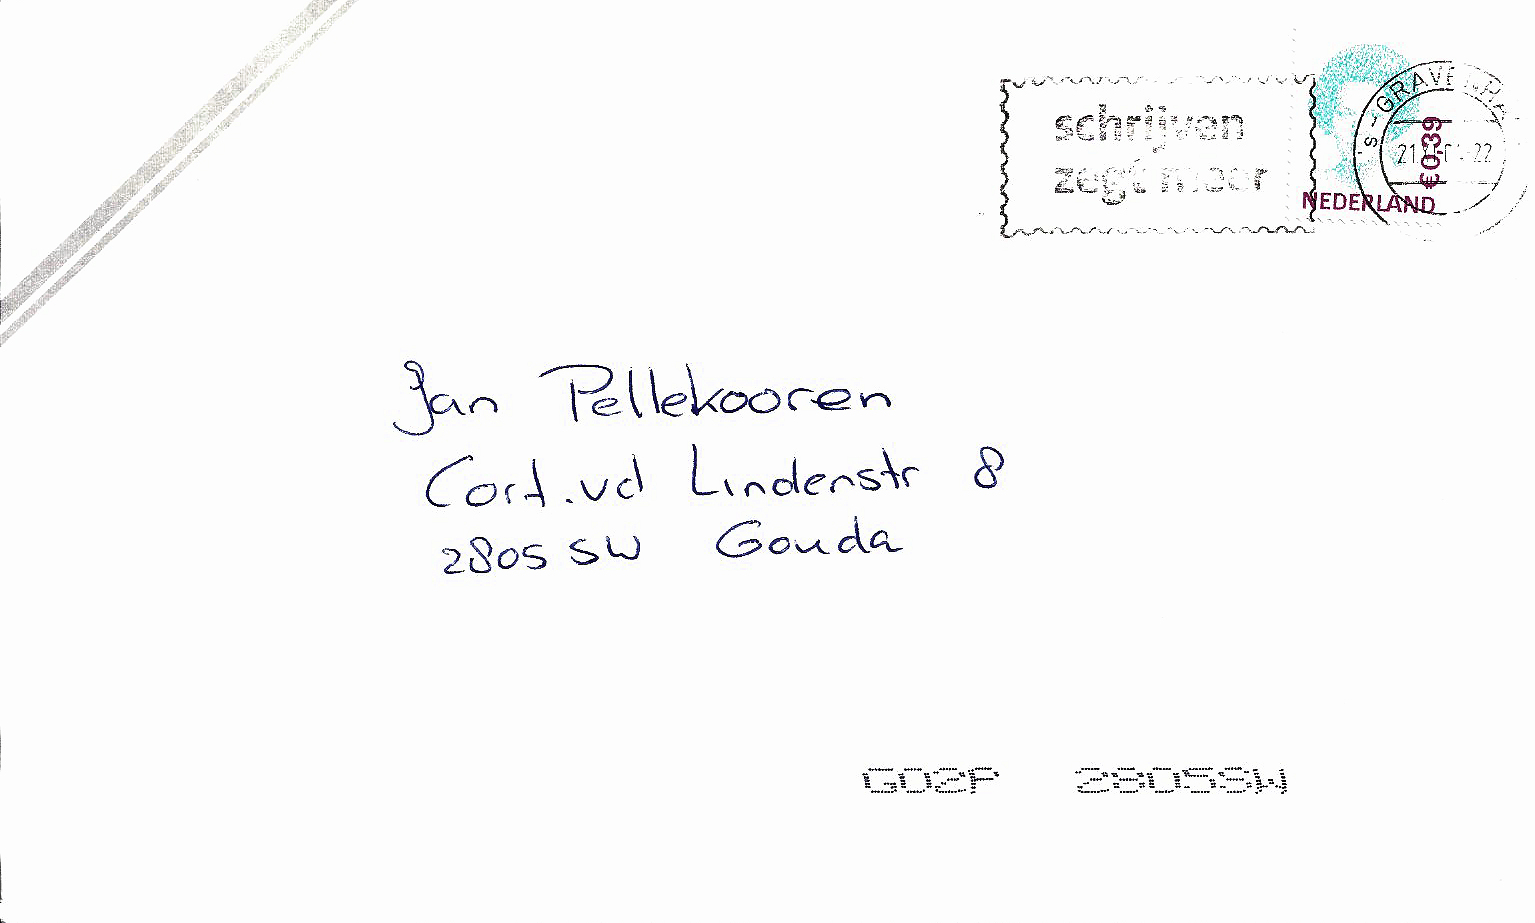 schrijven
zegt meer
€0.39
NEDERLAND
Jan Pellekooren
Cort.vd Lindenstr 8
2805 SW Gouda
GO2P 2805SW